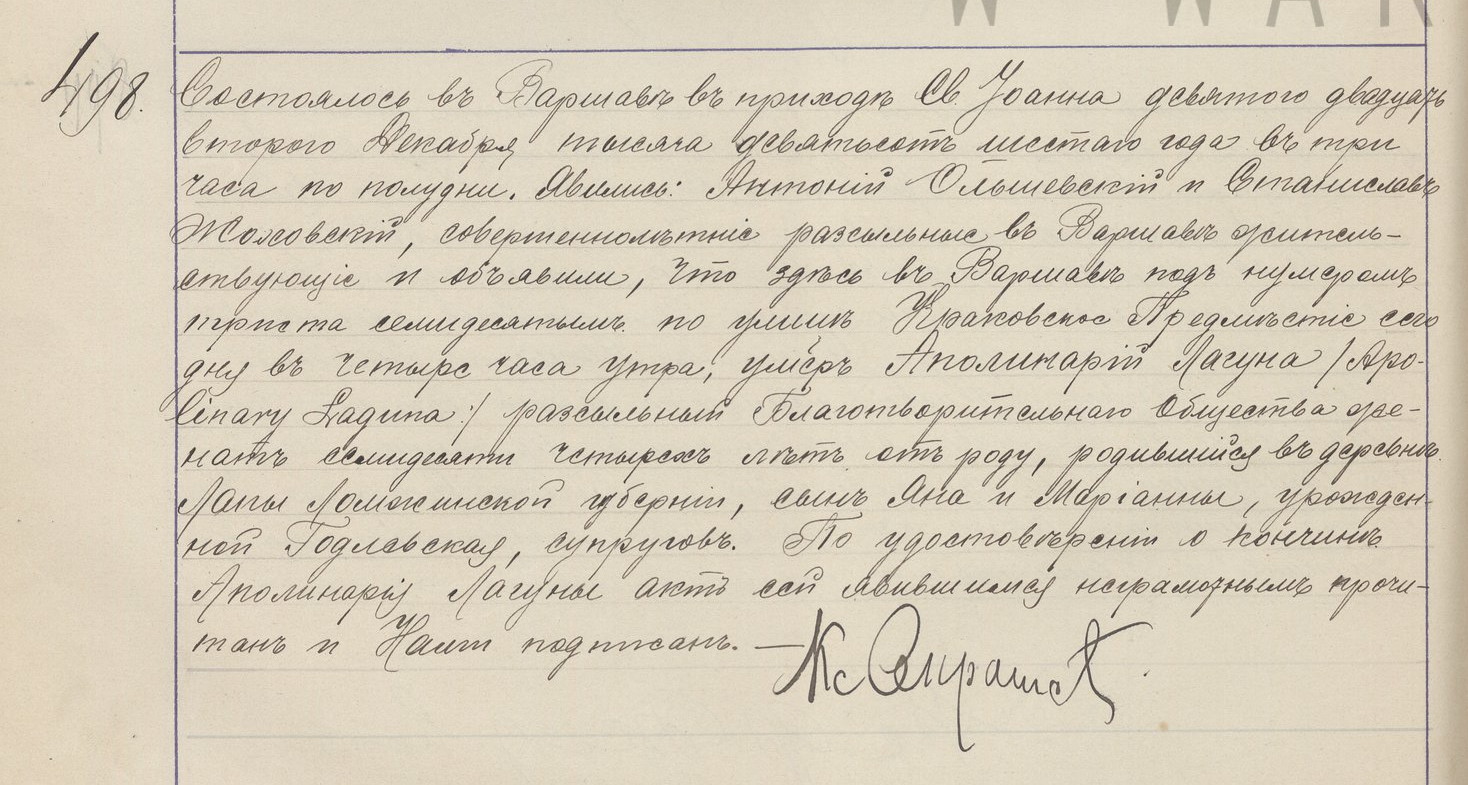 W WAR
498.
Состоялось въ Варшавѣ въ приходѣ Св. Іоанна девятого двадцать
второго Декабря тысяча девятьсотъ шестаго года въ три
часа по полудни. Явились: Антоній Ольшевскій и Станиславъ
Жоховскій, совершеннолѣтніе разсыльные въ Варшавѣ житель-
ствующіе и объявили, что здѣсь въ Варшавѣ подъ нумеромъ
триста семидесятымъ по улицѣ Краковское Предмѣстіе сего
дня въ четыре часа утра, умеръ Аполинарій Лагуна /:Apo-
linary Łaguna:/ разсыльный Благотворительнаго Общества же-
натъ семидесяти четырехъ лѣтъ отъ роду, родившійся въ деревнѣ
Лапы Ломжинской губерніи, сынъ Яна и Маріанны, урожден-
ной Годлевская, супруговъ. По удостовѣреніи о кончинѣ
Аполинарія Лагуны актъ сей явившимся неграмотнымъ прочи-
танъ и Нами подписанъ. —
Кс